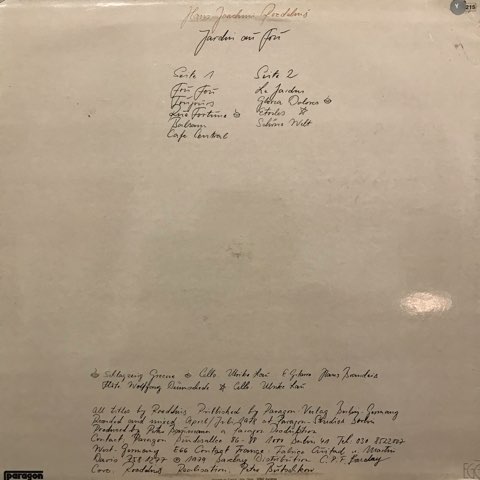 Hans Joachim Roedelius
Jardin au Fou
Seite 1
Fou Fou
Toujours
Rue Fortune
Balsam
Cafe Central
Seite 2
Le Jardin
Gloria Dolores
Etoiles
Schöne Welt
Schlagzeug Greene Cello, Ulrike Lau, E Gitarre Hans Brandeis
Flöte Wolfgang Cello, Ulrike Lau
All titles by Roedelius Published by Paragon Verlag Germany
Recorded and mixed April/July 1978 at Paragon-Studios Berlin
Produced by Peter Baumann a Paragon Production
Contact. Paragon 86-88 1000 Berlin 41 Tel. 030
West-Germany EGG Contact France: Fabrice Custad u. Martin
Davis © 1979 Barclay Distribution C.P.F. Barclay
Cover: Roedelius Realisation: Peter
paragon
EGG